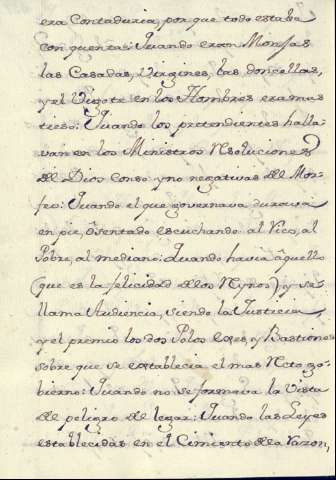 era Contaduria, por que todo estaba
con quentas: Quando eran Monjas
las Casadas, Virgines, las doncellas,
y el Vigote en los Hombres era mas
tieso: Quando los pretendientes halla-
van en los Ministros Resoluciones
de Dios con so y no negativas de
feo: Quando el que governava durava
en pie, ô sentado escuchando al Rico, al
Pobre, al mediano: Quando havia âquello
(que es la felicidad de los Rynos) y se
llama Audiencia, siendo la Justicia
y el premio los dos Polos, exes, y Bastiones
sobre que se establecia el mas Recto go-
bierno: Quando no se formava la Vista
de peligro de legar: Quando las Leyes
establecidas en el Cimiento de la Razon,